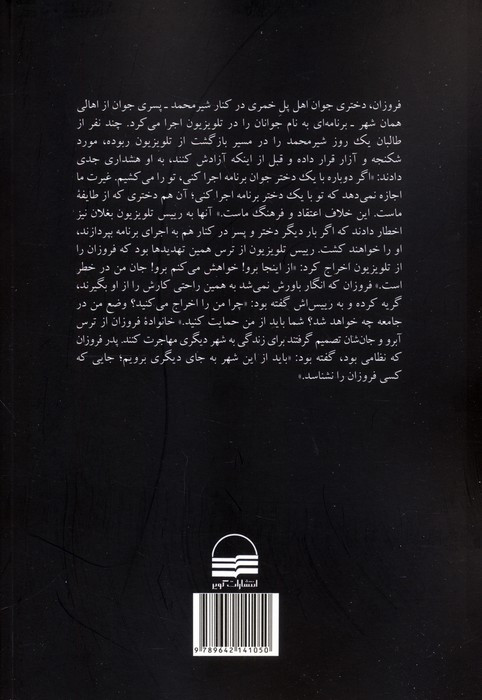 فروزان، دختری جوان اهل پل خمری در کنار شیرمحمد ـ پسری جوان از اهالی
همان شهر ـ برنامه‌ای به نام جوانان را در تلویزیون اجرا می‌کرد. چند نفر از
طالبان یک روز شیرمحمد را در مسیر بازگشت از تلویزیون ربوده، مورد
شکنجه و آزار قرار داده و قبل از اینکه آزادش کنند، به او هشداری جدی
دادند: «اگر دوباره با یک دختر جوان برنامه اجرا کنی، تو را می‌کشیم. غیرت ما
اجازه نمی‌دهد که تو با یک دختر برنامه اجرا کنی؛ آن هم دختری که از طایفهٔ
ماست. این خلاف اعتقاد و فرهنگ ماست.» آنها به رییس تلویزیون بغلان نیز
اخطار دادند که اگر بار دیگر دختر و پسر در کنار هم به اجرای برنامه بپردازند،
او را خواهند کشت. رییس تلویزیون از ترس همین تهدیدها بود که فروزان را
از تلویزیون اخراج کرد: «از اینجا برو! خواهش می‌کنم برو! جان من در خطر
است.» فروزان که انگار باورش نمی‌شد به همین راحتی کارش را از او بگیرند،
گریه کرده و به رییس‌اش گفته بود: «چرا من را اخراج می‌کنید؟ وضع من در
جامعه چه خواهد شد؟ شما باید از من حمایت کنید.» خانوادهٔ فروزان از ترس
آبرو و جان‌شان تصمیم گرفتند برای زندگی به شهر دیگری مهاجرت کنند. پدر فروزان
که نظامی بود، گفته بود: «باید از این شهر به جای دیگری برویم؛ جایی که
کسی فروزان را نشناسد.»
انتشارات کویر
9 789642 141050